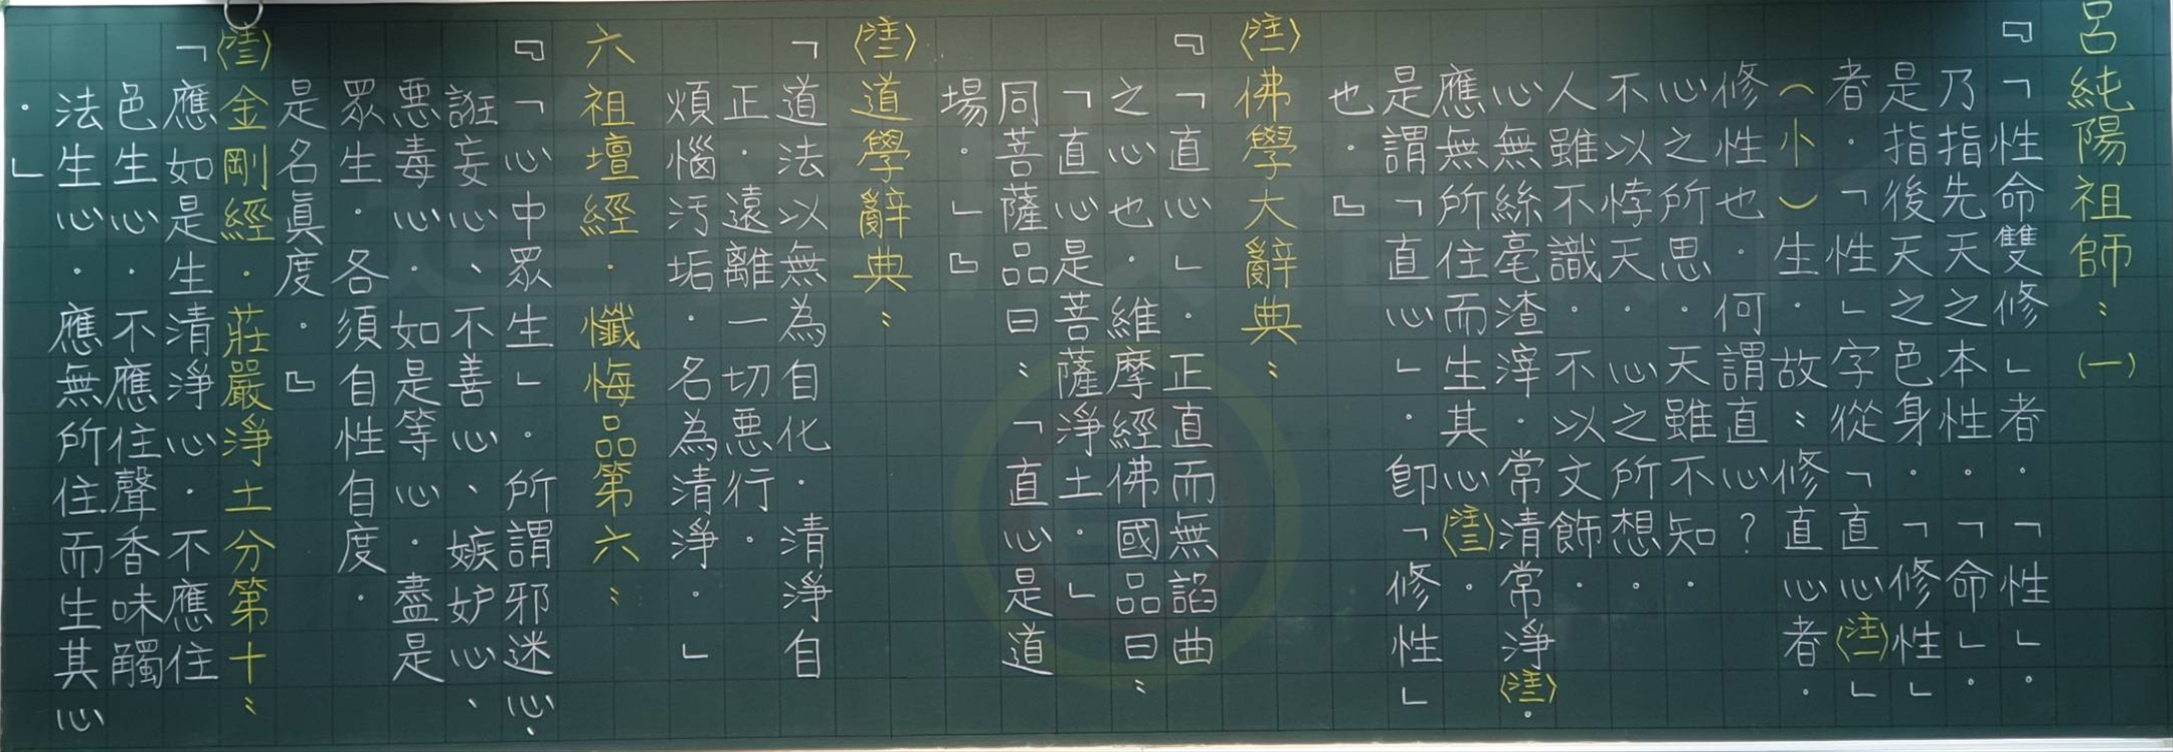 呂純陽祖師：(一)
『「性命雙修」者。「性」。
乃指先天之本性。「命」。
是指後天之色身。「修性」
者。「性」字從「直心(註一)」
(小)生。故：修直心者。
修性也。何謂直心？
心之所思。天雖不知。
不以悖天。心之所想。
人雖不識。不以文飾。
心無絲毫渣滓。常清常淨(註二)。
應無所住而生其心(註三)。
是謂「直心」。即「修性」
也。』
(註一)佛學大辭典：
『「直心」。正直而無諂曲
之心也。維摩經佛國品曰：
「直心是菩薩淨土。」
同菩薩品曰：「直心是道
場。」』
(註二)道學辭典：
「道法以無為自化。清淨自
正。遠離一切惡行。
煩惱污垢。名為清淨。」
六祖壇經．懺悔品第六：
『「心中眾生」。所謂邪迷心、
誑妄心、不善心、嫉妒心、
惡毒心。如是等心。盡是
眾生。各須自性自度。
是名真度。』
(註三)金剛經．莊嚴淨土分第十：
「應如是生清淨心。不應住
色生心。不應住聲香味觸
法生心。應無所住而生其心
。」